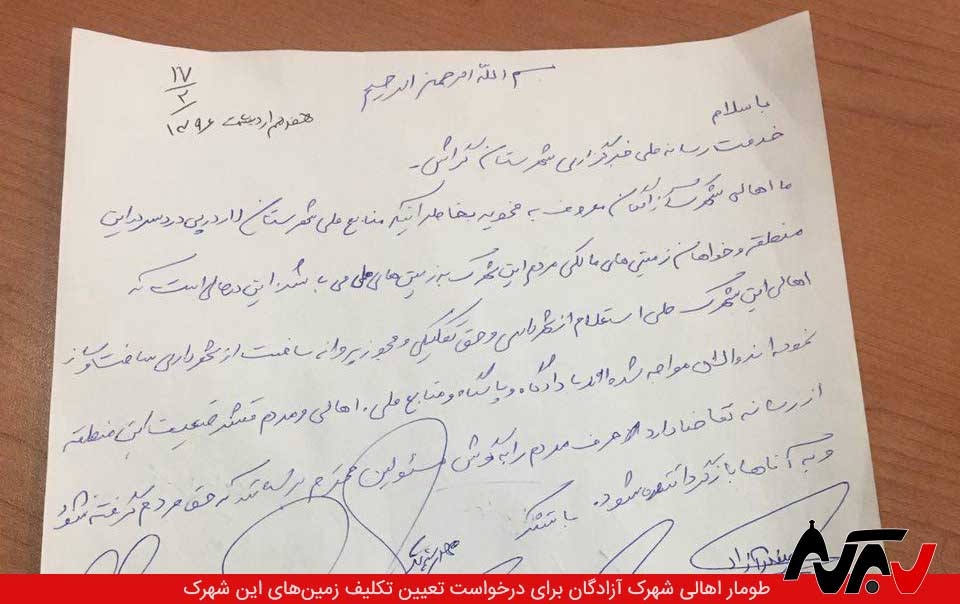 بسم الله الرحمن الرحیم
۱۷/۲
هفدهم اردیبهشت ۱۳۹۶
با سلام
خدمت رسانه ملی خبرگزاری شهرستان گراش.
ما اهالی شهرک آزادگان معروف به بخاطر اینکه منابع ملی شهرستان لار در پی دردسر در این
منطقه و خواهان زمین‌های مالکی مردم این شهرک به زمین‌های ملی می باشد. این در حالی است که
اهالی این شهرک طی استعلام از شهرداری و حق تفکیکی و مجوز پروانه ساخت از شهرداری ساخت و ساز
نموده اند و الان مواجه شده اند با دادگاه و پاسگاه و منابع ملی. اهالی و مردم قشر ضعیف این منطقه
از رسانه تقاضا دارد حرف مردم را به گوش مسئولین محترم برساند که حق مردم گرفته شود
و به آناها بازگردانده شود. با تشکر
نبض
طومار اهالی شهرک آزادگان برای درخواست تعیین تکلیف زمین‌های این شهرک